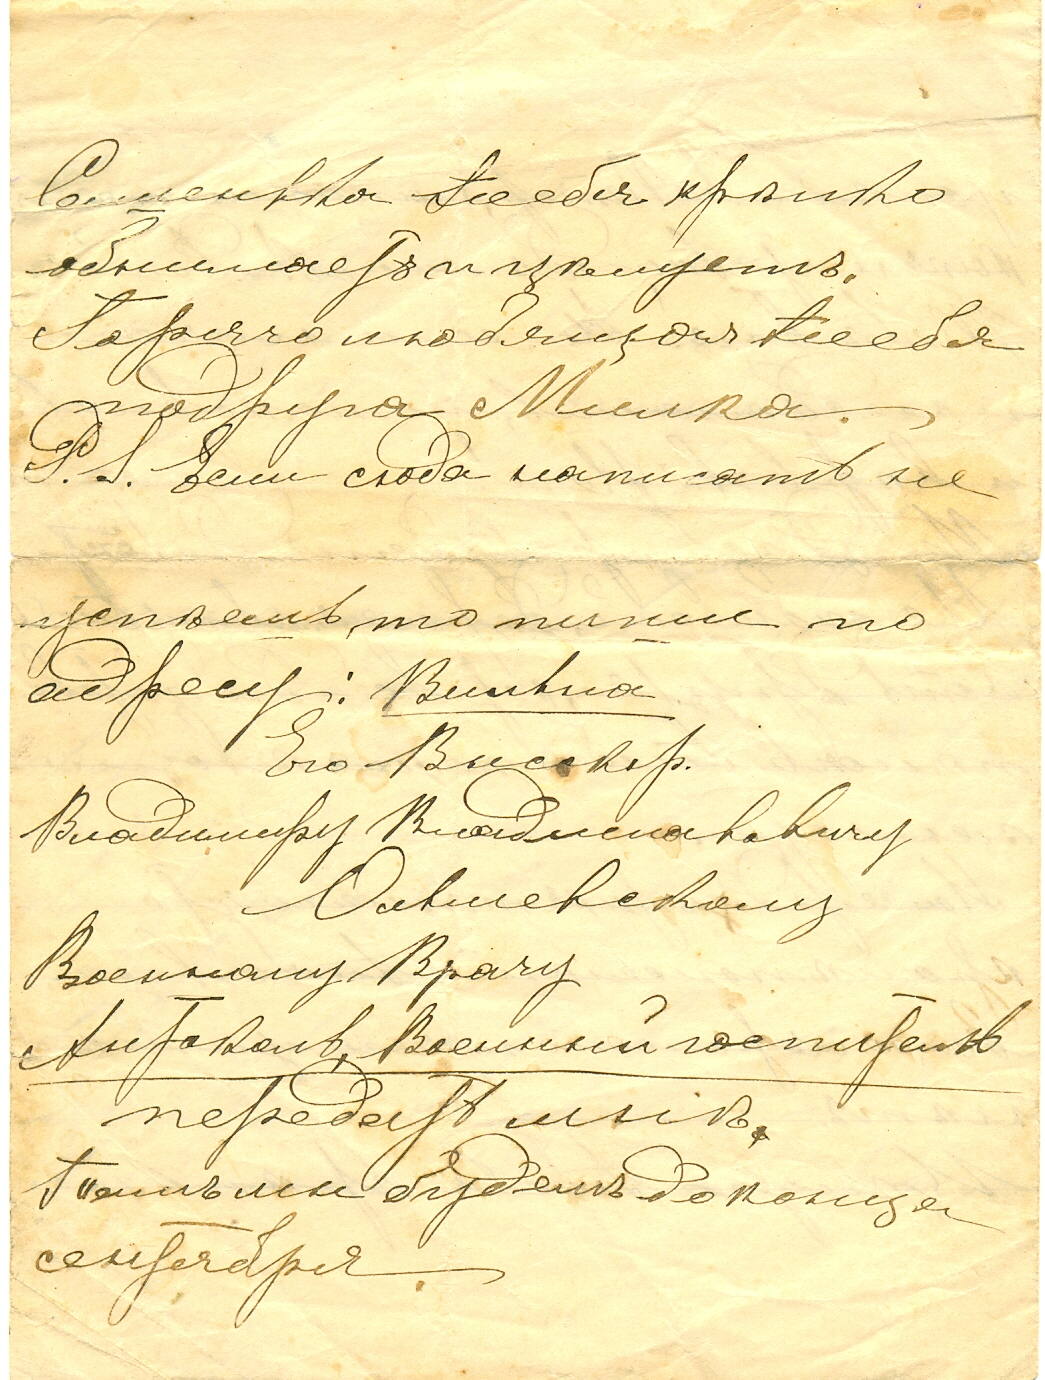 Семенька тебя крѣпко
обнимаетъ и цѣлуетъ.
Горячо любящая тебя
подруга Милка.
P.S. Если сюда написать не
успѣешь, то пиши по
адресу: Вильна
Его Высокор.
Владимиру Владиславовичу
Ольшевскому
Военному Врачу
Антоколь, Военный госпиталь
передать мнѣ.
Тамъ мы будемъ до конца
сентября.